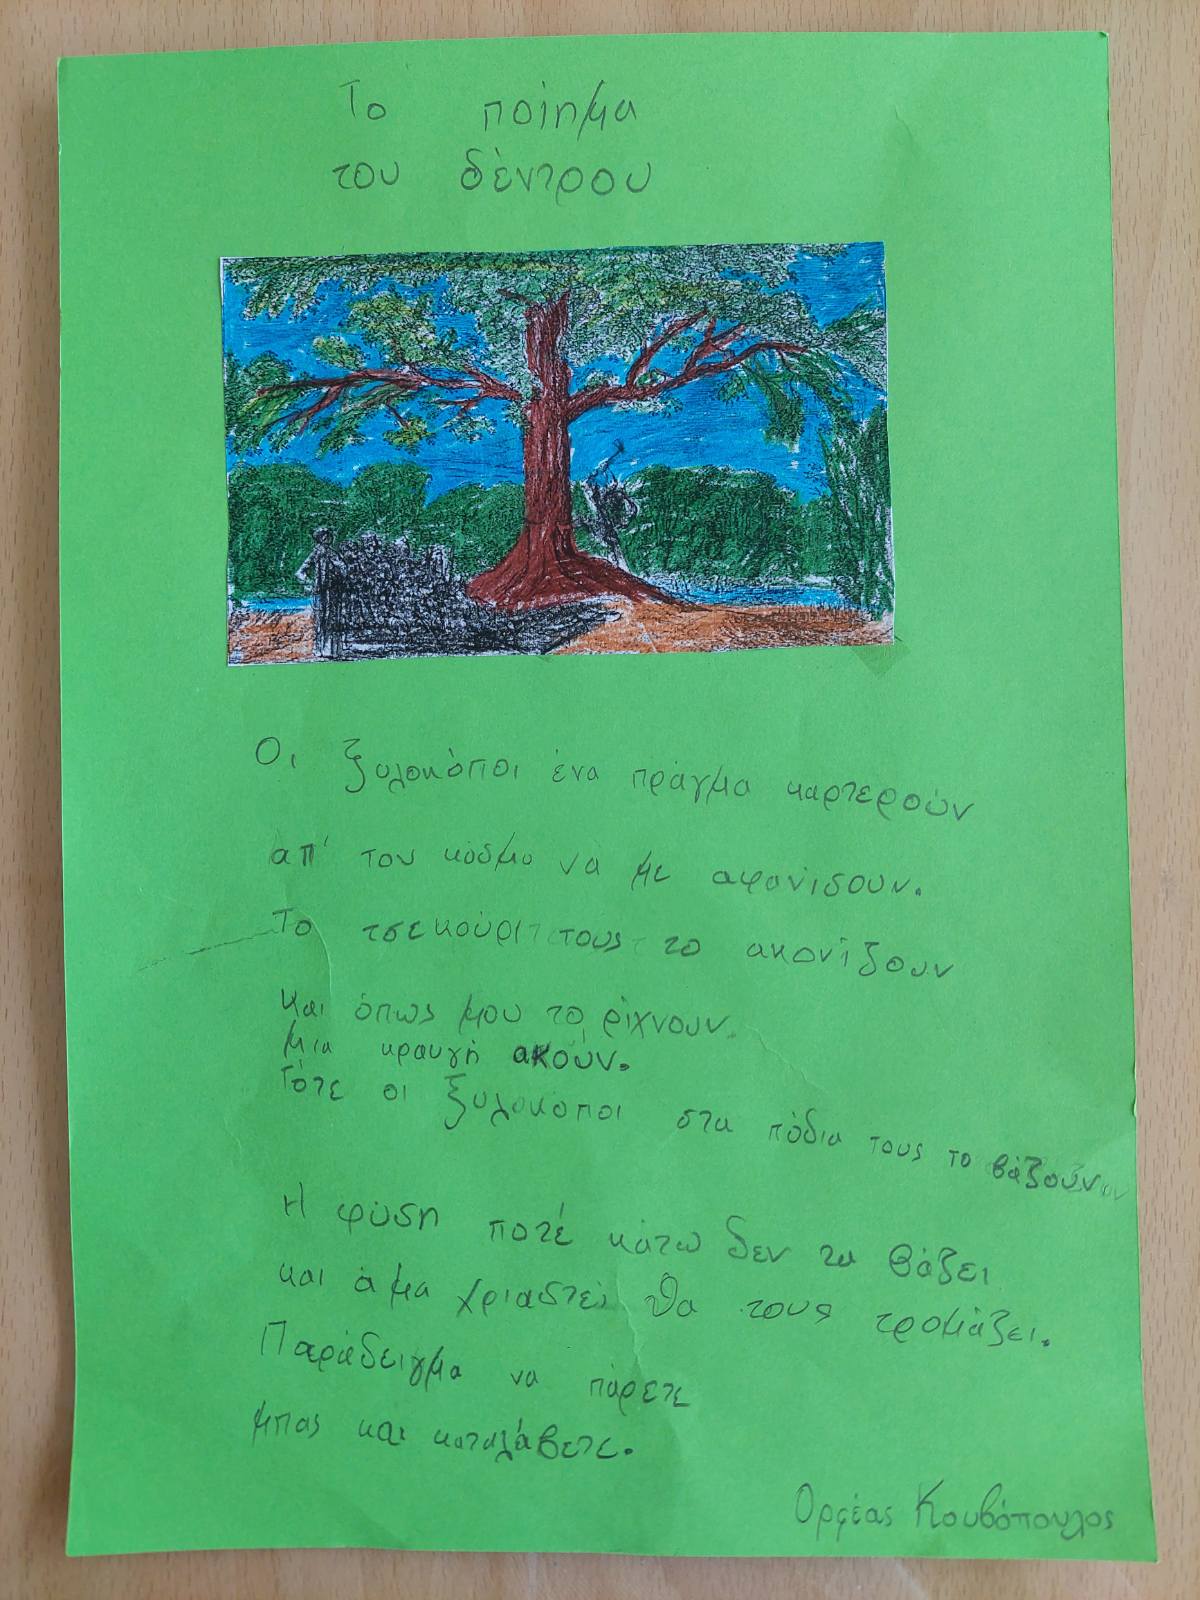 Το ποίημα
του δέντρου
Οι ξυλοκόποι ένα πράγμα καρτερούν
απ' τον κόσμο να με αφανίσουν.
Το τσεκούρι τους το ακονίζουν
και όπως μου το ρίχνουν
μια κραυγή ακούν.
Τότε οι ξυλοκόποι στα πόδια τους το βάζουν
Η φύση ποτέ κάτω δεν τα βάζει
και άμα χριαστεί θα τους τρομάξει.
Παράδειγμα να πάρετε
μπας και καταλάβετε.
Ορφέας Κουβόπουλος